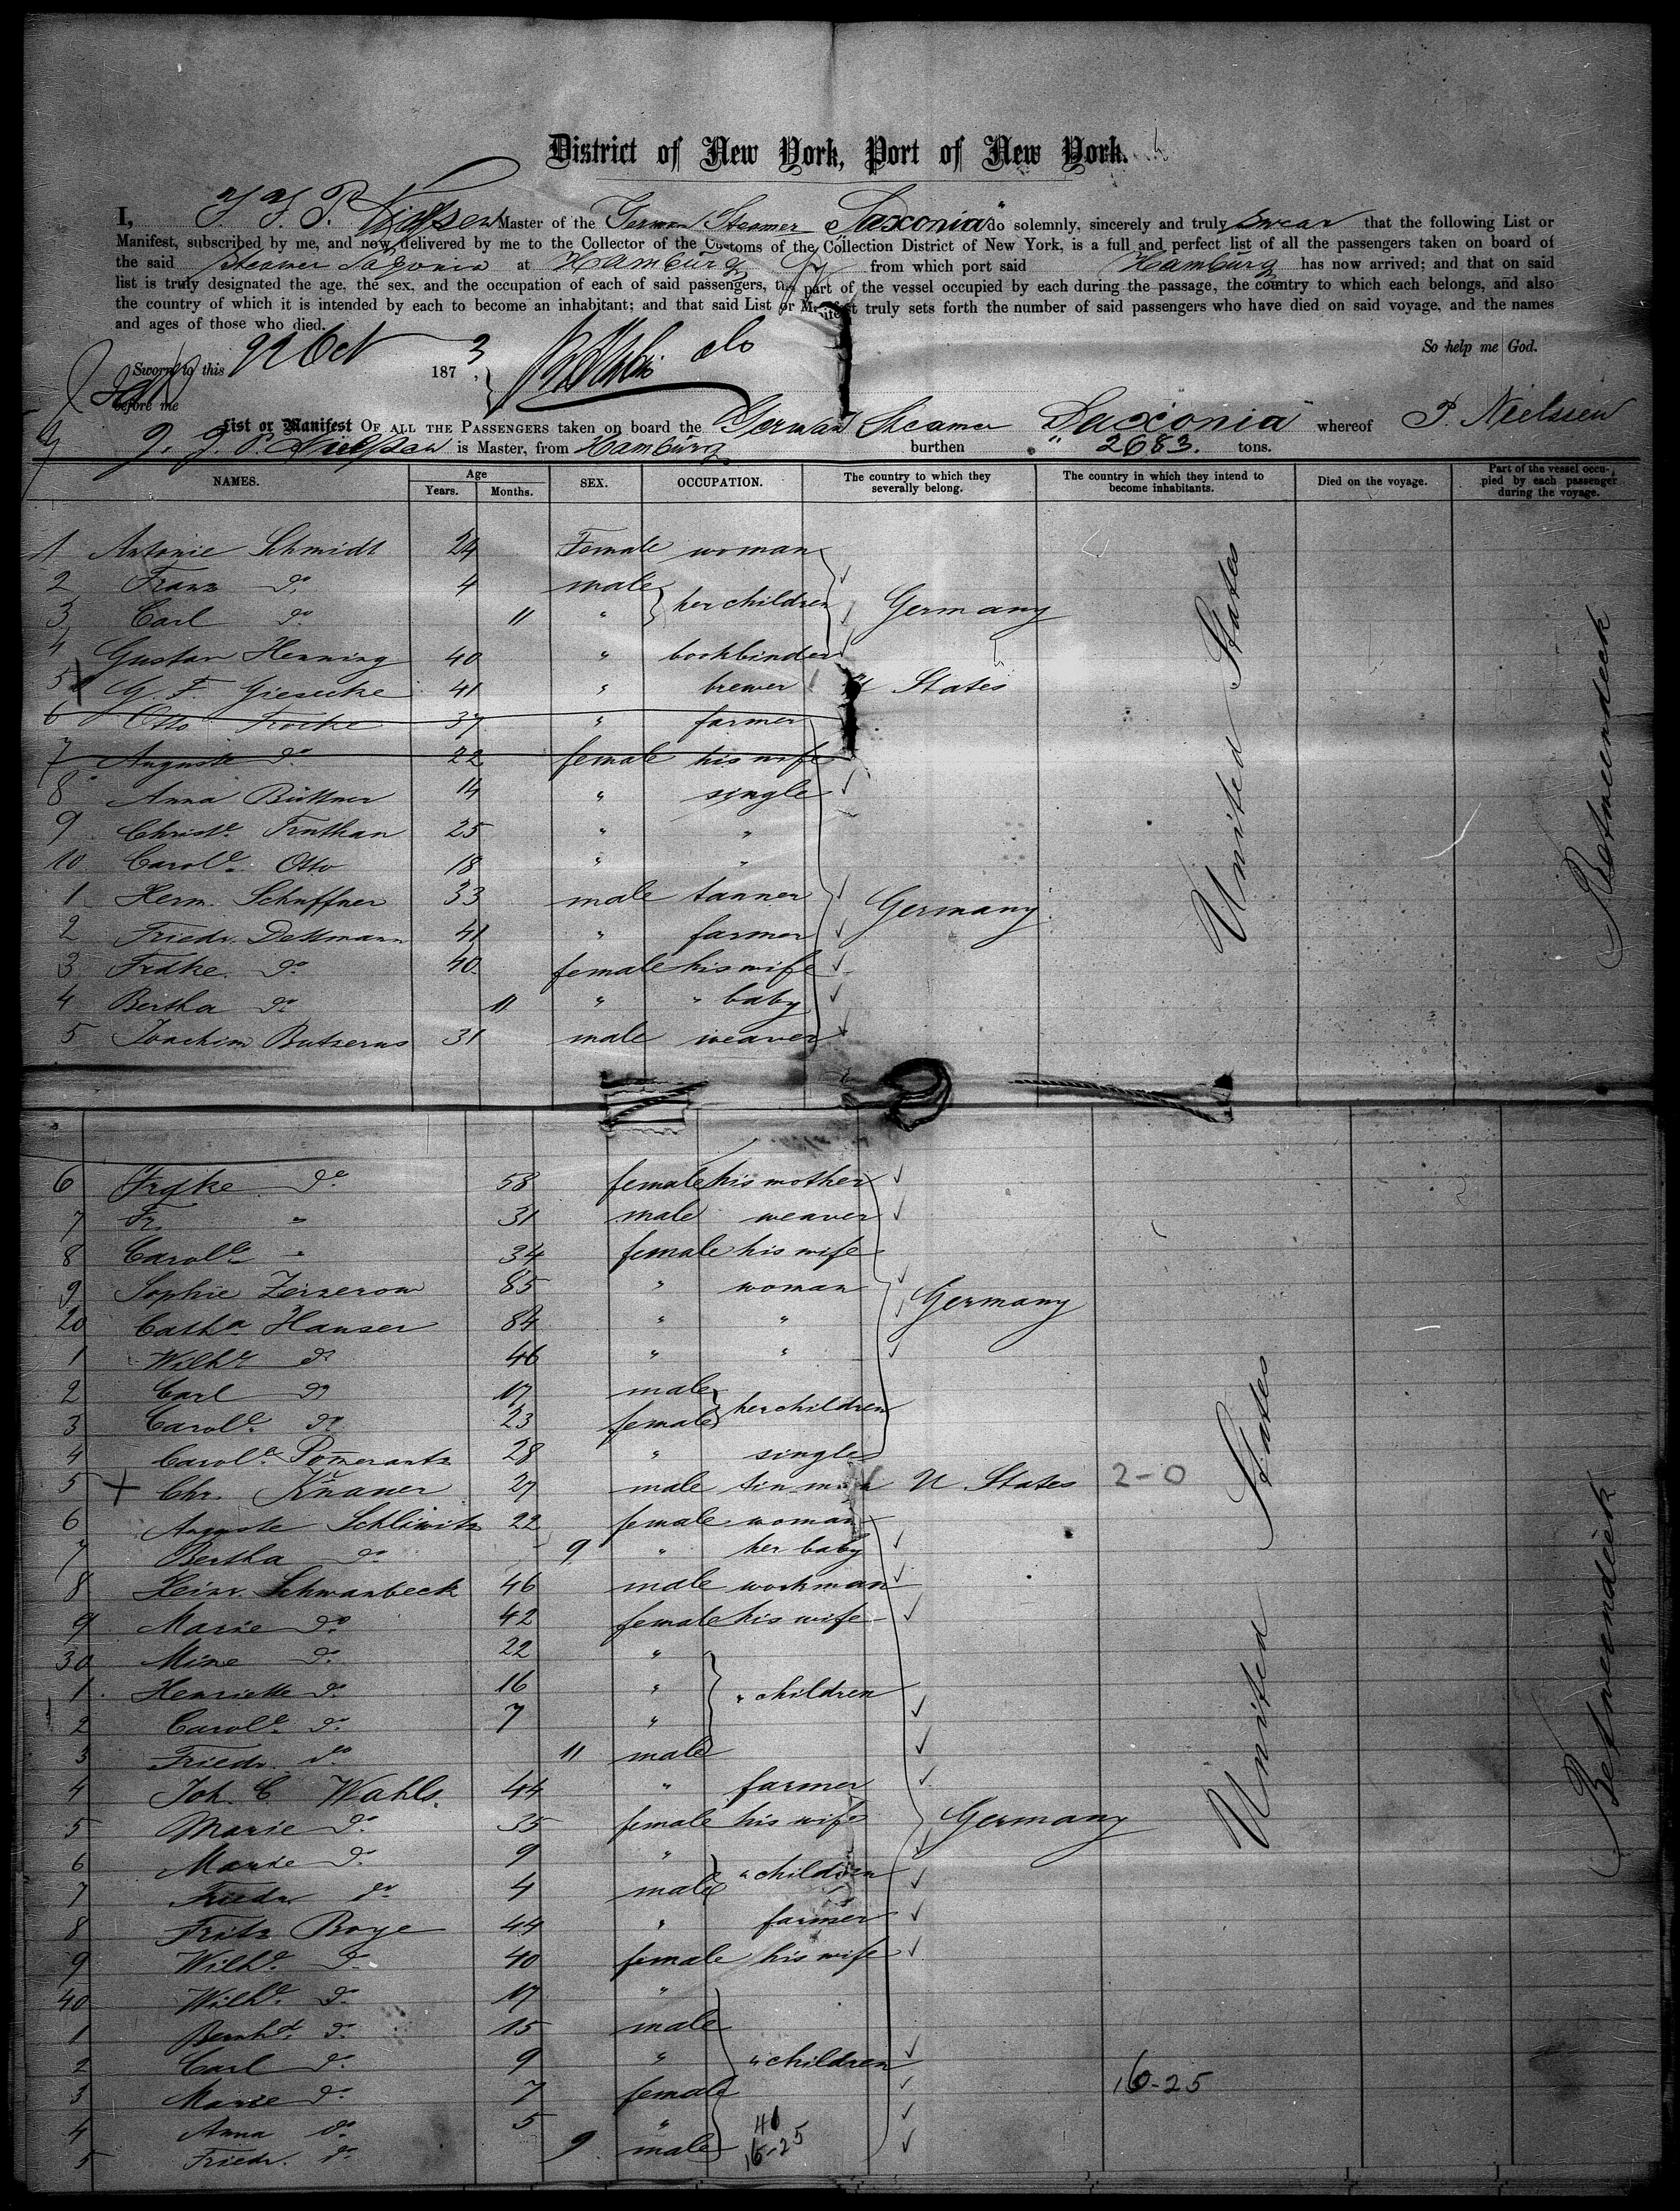 District of New York, Port of New York.
I, J. J. P. Nielssen Master of the German Steamer "Saxonia" do solemnly, sincerely and truly swear that the following List or
Manifest, subscribed by me, and now delivered by me to the Collector of the Customs of the Collection District of New York, is a full and perfect list of all the passengers taken on board of
the said Steamer Saxonia at Hamburg from which port said Hamburg has now arrived; and that on said
list is truly designated the age, the sex, and the occupation of each of said passengers, the part of the vessel occupied by each during the passage, the country to which each belongs, and also
the country of which it is intended by each to become an inhabitant; and that said List or Manifest truly sets forth the number of said passengers who have died on said voyage, and the names
and ages of those who died.
So help me God.
Sworn to this 22 Oct 1873
before me
List or Manifest OF ALL THE PASSENGERS taken on board the German Steamer Saxonia whereof P. Nielssen
J. J. P. Nielssen is Master, from Hamburg burthen " 2683. tons.
NAMES. Age Years. Months. SEX. OCCUPATION. The country to which they severally belong. The country in which they intend to become inhabitants. Died on the voyage. Part of the vessel occupied by each passenger during the voyage.
1 Antonie Schmidt 24 Female woman
2 Franz do 4 male her children
3 Carl do 11 " Germany
4 Gustav Henning 40 " bookbinder
5 G. F. Giesecke 41 " brewer U States
6 Otto 37 " farmer
7 Auguste do 22 female his wife
8 Anna Büttner 14 " single
9 Christe Truthan 25 " "
10 Carole Otto 18 " "
1 Herm. Schuffner 33 male tanner Germany
2 Friedr. Dettmann 41 " farmer
3 Frdke. do 40 female his wife
4 Bertha do 11 " " baby
5 Joachim Butzerus 31 male weaver
United States
Betweendeck
6 Frdke do 58 female his mother
7 Fr. " 31 male weaver
8 Carole " 34 female his wife
9 Sophie Zeizerow 85 " woman Germany
20 Catha Hanser 84 " "
1 Wilhe do 46 " "
2 Carl do 17 male her children
3 Carole do 23 female
4 Carole Pomerantz 28 " single
5 Chr. Knauer 27 male U. States 2-0
6 Auguste Schliwitz 22 female woman
7 Bertha do 9 " her baby
8 Heinr. Schwanbeck 46 male workman
9 Marie do 42 female his wife
30 Mine do 22 "
1 Henriette do 16 " " children
2 Carole do 7 "
3 Friedr. do 11 male
4 Joh. C. Wahls. 44 " farmer
5 Marie do 35 female his wife Germany
6 Marie do 9 " " children
7 Friedr do 4 male
8 Fritz Boye 44 " farmer
9 Wilhe do 40 female his wife
40 Wilhe do 17 "
1 Bernhd. do 15 male
2 Carl do 9 " " children
3 Marie do 7 female 16-25
4 Anna do 5 "
5 Friedr. do 9 male
41
16-25
United States
Betweendeck